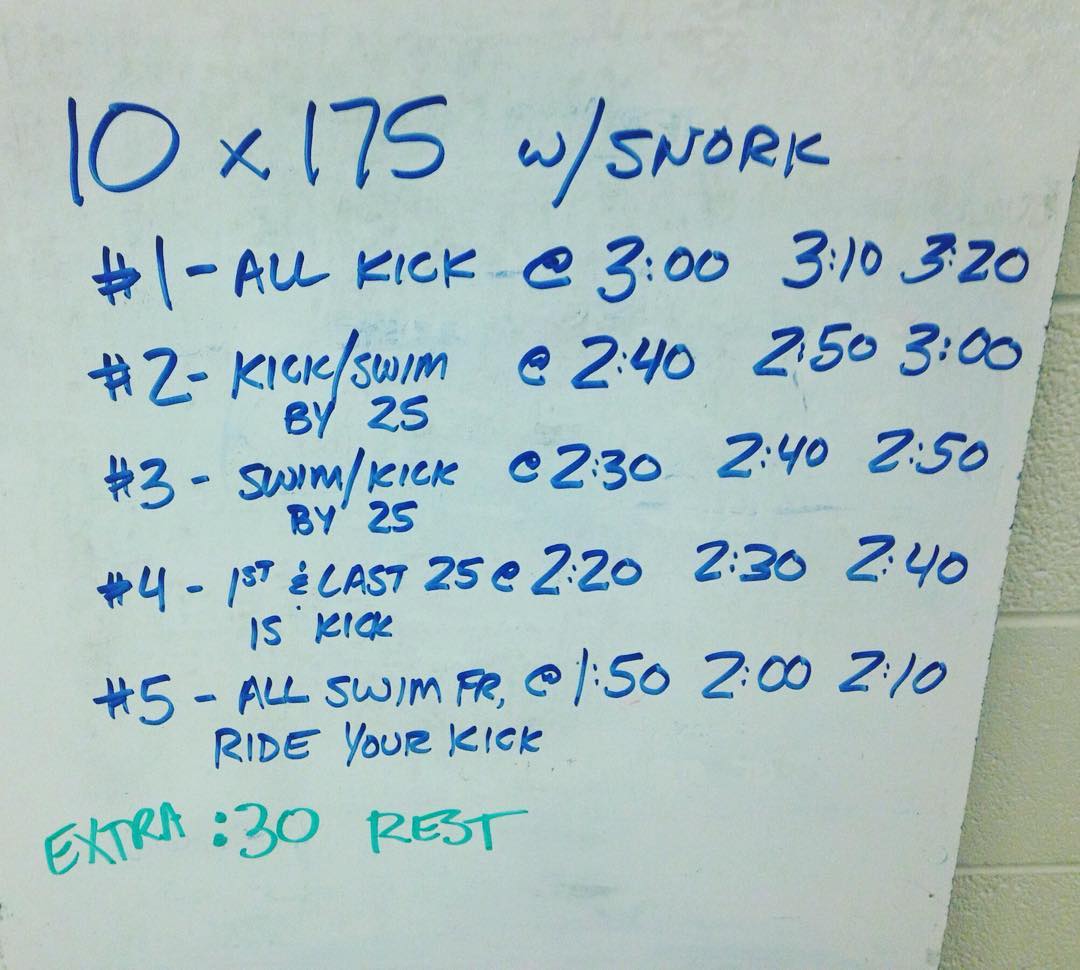 10 x 175 w/SNORK
#1 - ALL KICK @ 3:00 3:10 3:20
#2 - KICK/SWIM @ 2:40 2:50 3:00
BY 25
#3 - SWIM/KICK @ 2:30 2:40 2:50
BY 25
#4 - 1ST & LAST 25 @ 2:20 2:30 2:40
IS KICK
#5 - ALL SWIM FR, @ 1:50 2:00 2:10
RIDE YOUR KICK
EXTRA :30 REST